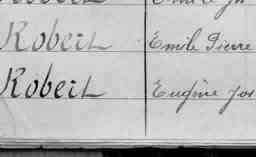 Robert Emile Pierre
Robert Eugène Jos